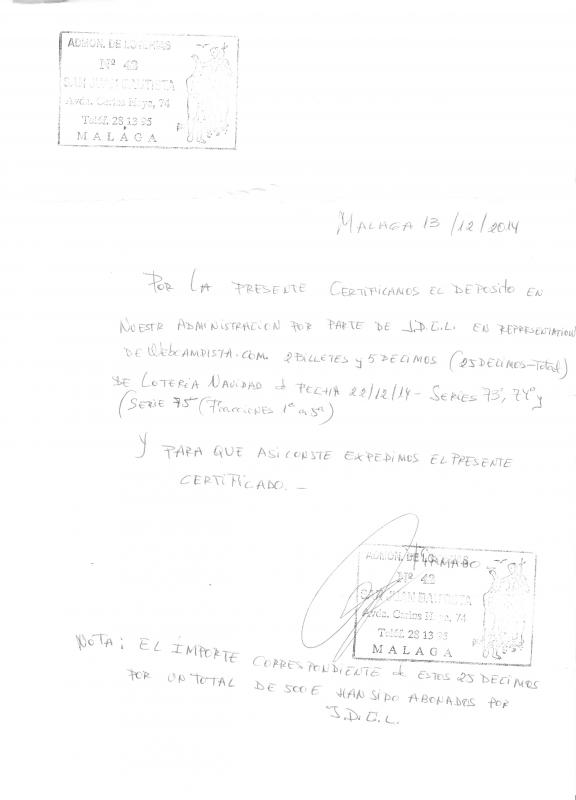 ADMON. DE LOTERIAS
Nº 42
SAN JUAN BAUTISTA
Avda. Carlos Haya, 74
Teléf. 28 13 95
MALAGA
MALAGA 13/12/2014
POR LA PRESENTE CERTIFICAMOS EL DEPOSITO EN
NUESTR ADMINISTRACION POR PARTE DE J.D.G.L. EN REPRESENTATION
DE WEBCAMPISTA.COM. 2 BILLETES y 5 DECIMOS (25 DECIMOS-TOTAL)
DE LOTERÍA NAVIDAD d FECHA 22/12/14 - SERIES 73ª, 74ª y
(SERIE 75ª (Fracciones 1ª a 5ª)
Y PARA QUE ASI CONSTE EXPEDIMOS EL PRESENTE
CERTIFICADO.-
FIRMADO
ADMON. DE LOTERIAS
Nº 42
SAN JUAN BAUTISTA
Avda. Carlos Haya, 74
Teléf. 28 13 95
MALAGA
NOTA: EL IMPORTE CORRESPONDIENTE d ESTOS 25 DECIMOS
POR UN TOTAL DE 500E HAN SIDO ABONADOS POR
J.D.G.L.